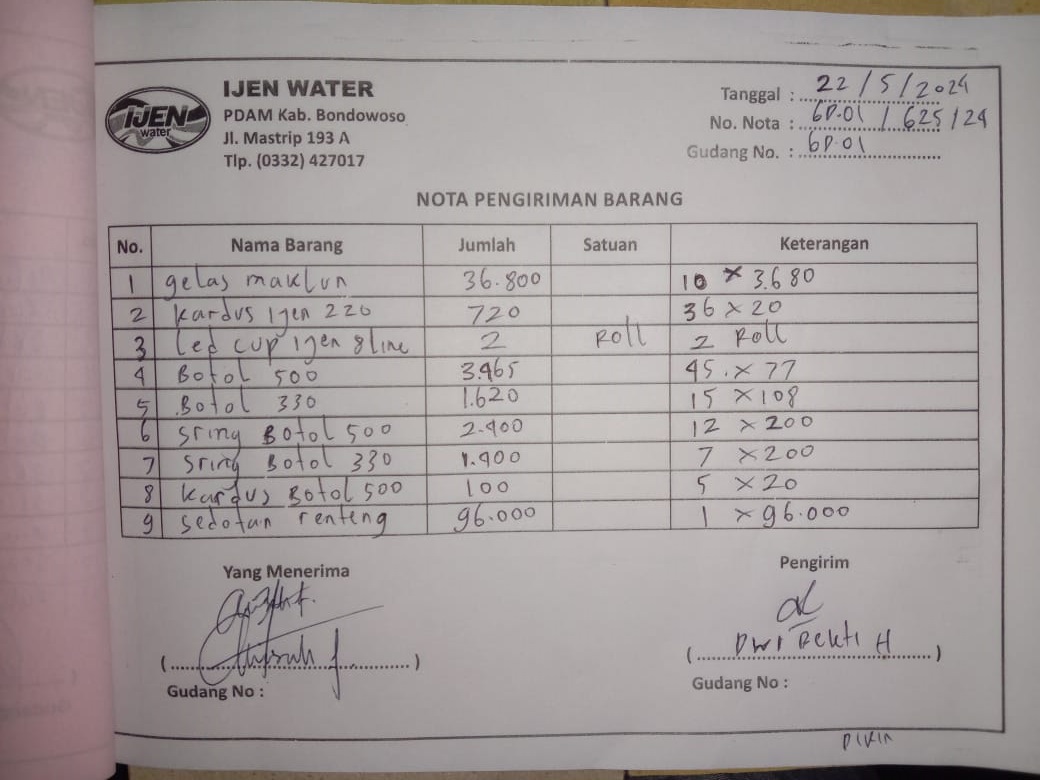 IJEN
water
IJEN WATER
PDAM Kab. Bondowoso
Jl. Mastrip 193 A
Tlp. (0332) 427017
Tanggal : 22 / 5 / 2024
No. Nota : GD.01 / 625 / 24
Gudang No. : GD.01
NOTA PENGIRIMAN BARANG
No. Nama Barang Jumlah Satuan Keterangan
1 gelas maklun 36.800 10 x 3.680
2 Kardus Ijen 220 720 36 x 20
3 Led cup Ijen 8 line 2 Roll 2 Roll
4 Botol 500 3.465 45 x 77
5 Botol 330 1.620 15 x 108
6 Sring Botol 500 2.400 12 x 200
7 Sring Botol 330 1.400 7 x 200
8 Kardus Botol 500 100 5 x 20
9 Sedotan renteng 96.000 1 x 96.000
Yang Menerima Pengirim
Dwi Bekti H
Gudang No : Gudang No :